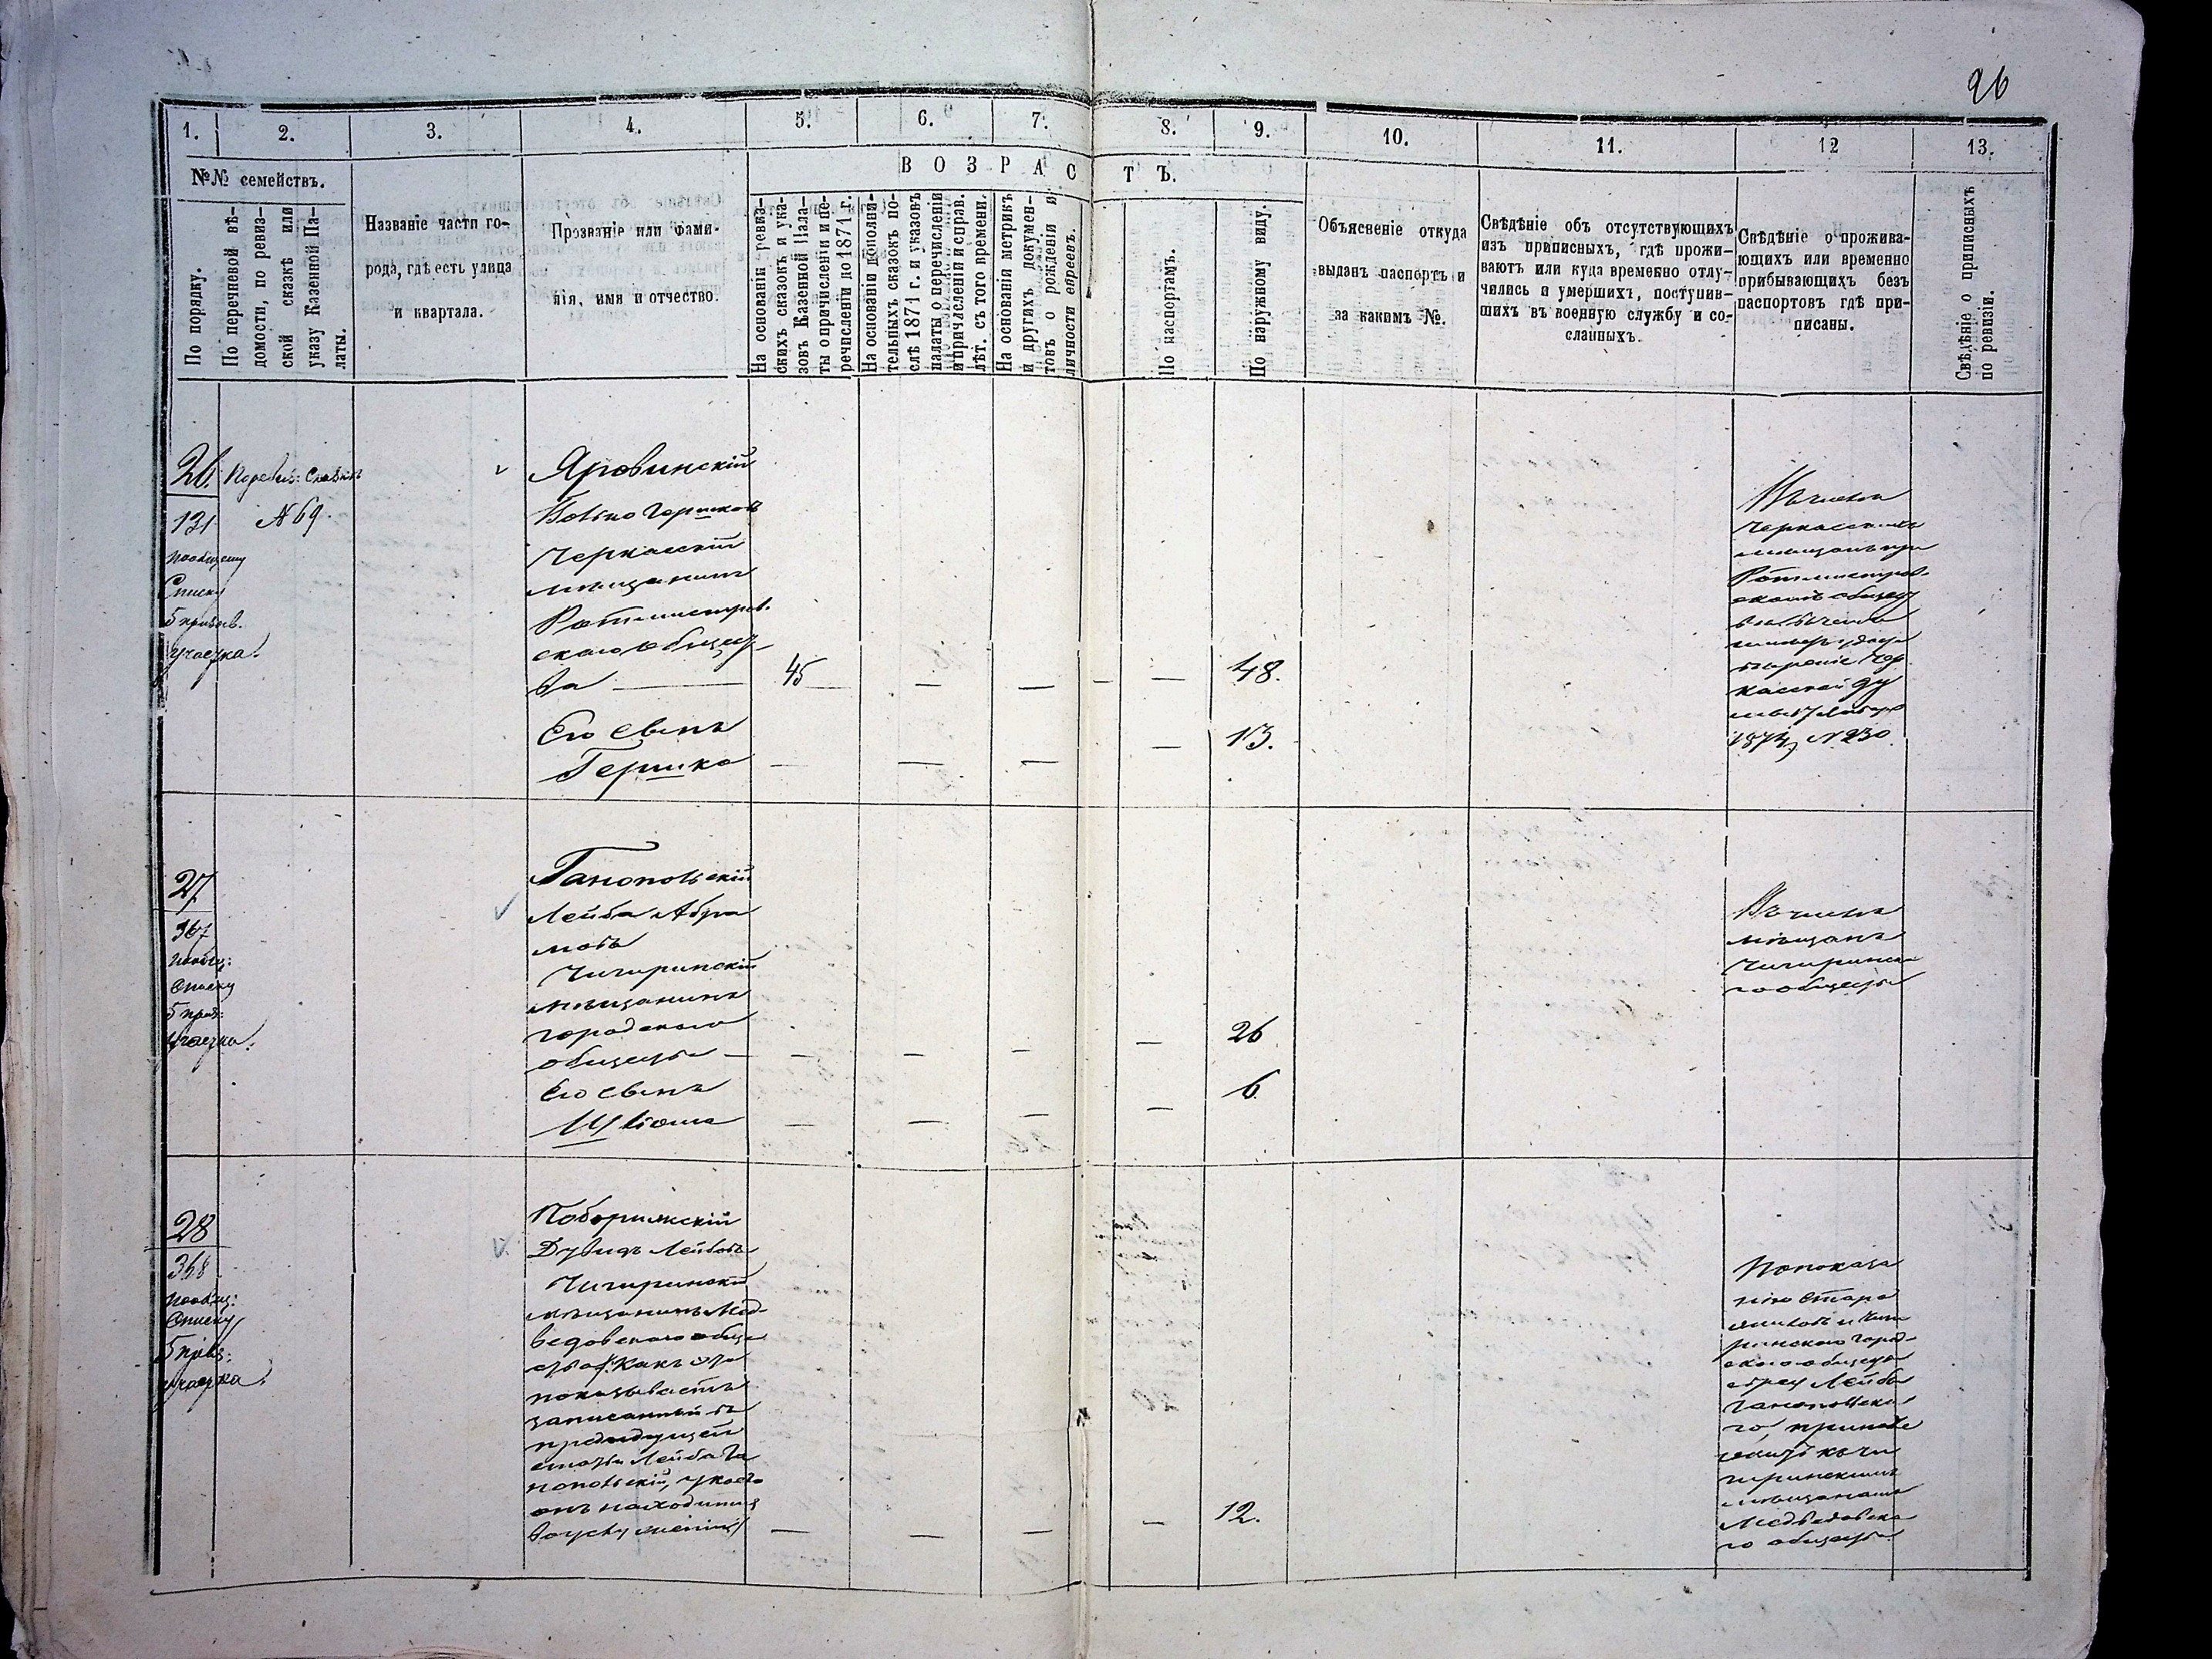 96
1. 2. 3. 4. 5. 6. 7. 8. 9. 10. 11. 12 13.
№№ семействъ.
ВОЗРАСТЪ.
По порядку.
По перечневой вѣ-
домости, по ревиз-
ской сказкѣ или
указу Казенной Па-
латы.
Названіе части го-
рода, гдѣ есть улица
и квартала.
Прозваніе или фами-
лія, имя и отчество.
На основаніи ревиз-
скихъ сказокъ и ука-
зовъ Казенной Пала-
ты о причисленіи и пе-
речисленіи до 1871 г.
На основаніи дополни-
тельныхъ сказокъ по-
слѣ 1871 г. и указовъ
палаты о перечисленіи
и причисленіи и справ.
лѣт. съ того времени.
На основаніи метрикъ
и другихъ докумен-
товъ о рожденіи и
личности евреевъ.
По паспортамъ.
По наружному виду.
Объясненіе откуда
выданъ паспортъ и
за какимъ №.
Свѣдѣніе объ отсутствующихъ
изъ приписныхъ, гдѣ прожи-
ваютъ или куда временно отлу-
чились и умершихъ, поступив-
шихъ въ военную службу и со-
сланныхъ.
Свѣдѣніе о прожива-
ющихъ или временно
прибывающихъ безъ
паспортовъ гдѣ при-
писаны.
Свѣдѣніе о приписныхъ
по ревизи.
26.
131
по общему
Списку
5 призыв.
участка.
По ревиз: Сказкѣ
№ 69.
Яровинскій
Гершковъ
Черкасскій
мѣщанинъ
Ротмистров-
скаго общест-
ва — 45 — — — 48.
Его сынъ
Гершко — — — — 13.
Въ числѣ
Черкасскихъ
мѣщанъ при
Ротмистров-
скомъ общест
Чер
касской Ду
мы
1874 № 230.
27
367
по общ:
Списку
5 приз:
участка.
Гапоновскій
Лейба Абра
мовъ
Чигиринскій
мѣщанинъ
городскаго
общества — — — — — 26
Его сынъ
— — — — 6.
Въ числѣ
мѣщанъ
Чигиринска
го общества
28
368
по общ:
Списку
5 приз:
участка.
Поборижскій
Дувидъ Лейбовъ
Чигиринскій
мѣщанинъ Мед-
ведовскаго обще
ства /: Какъ это
показываетъ
записанный въ
предъидущей
статьи Лейба Га
поновскій, у коего
онъ находится
въ услуженіи/ — — — — 12.
По показа
нію Старо
Чиги
ринскаго город-
скаго общества
еврея Лейбы
Гапоновска
го,
къ чи
гиринскимъ
мѣщанамъ
Медведовска
го общества